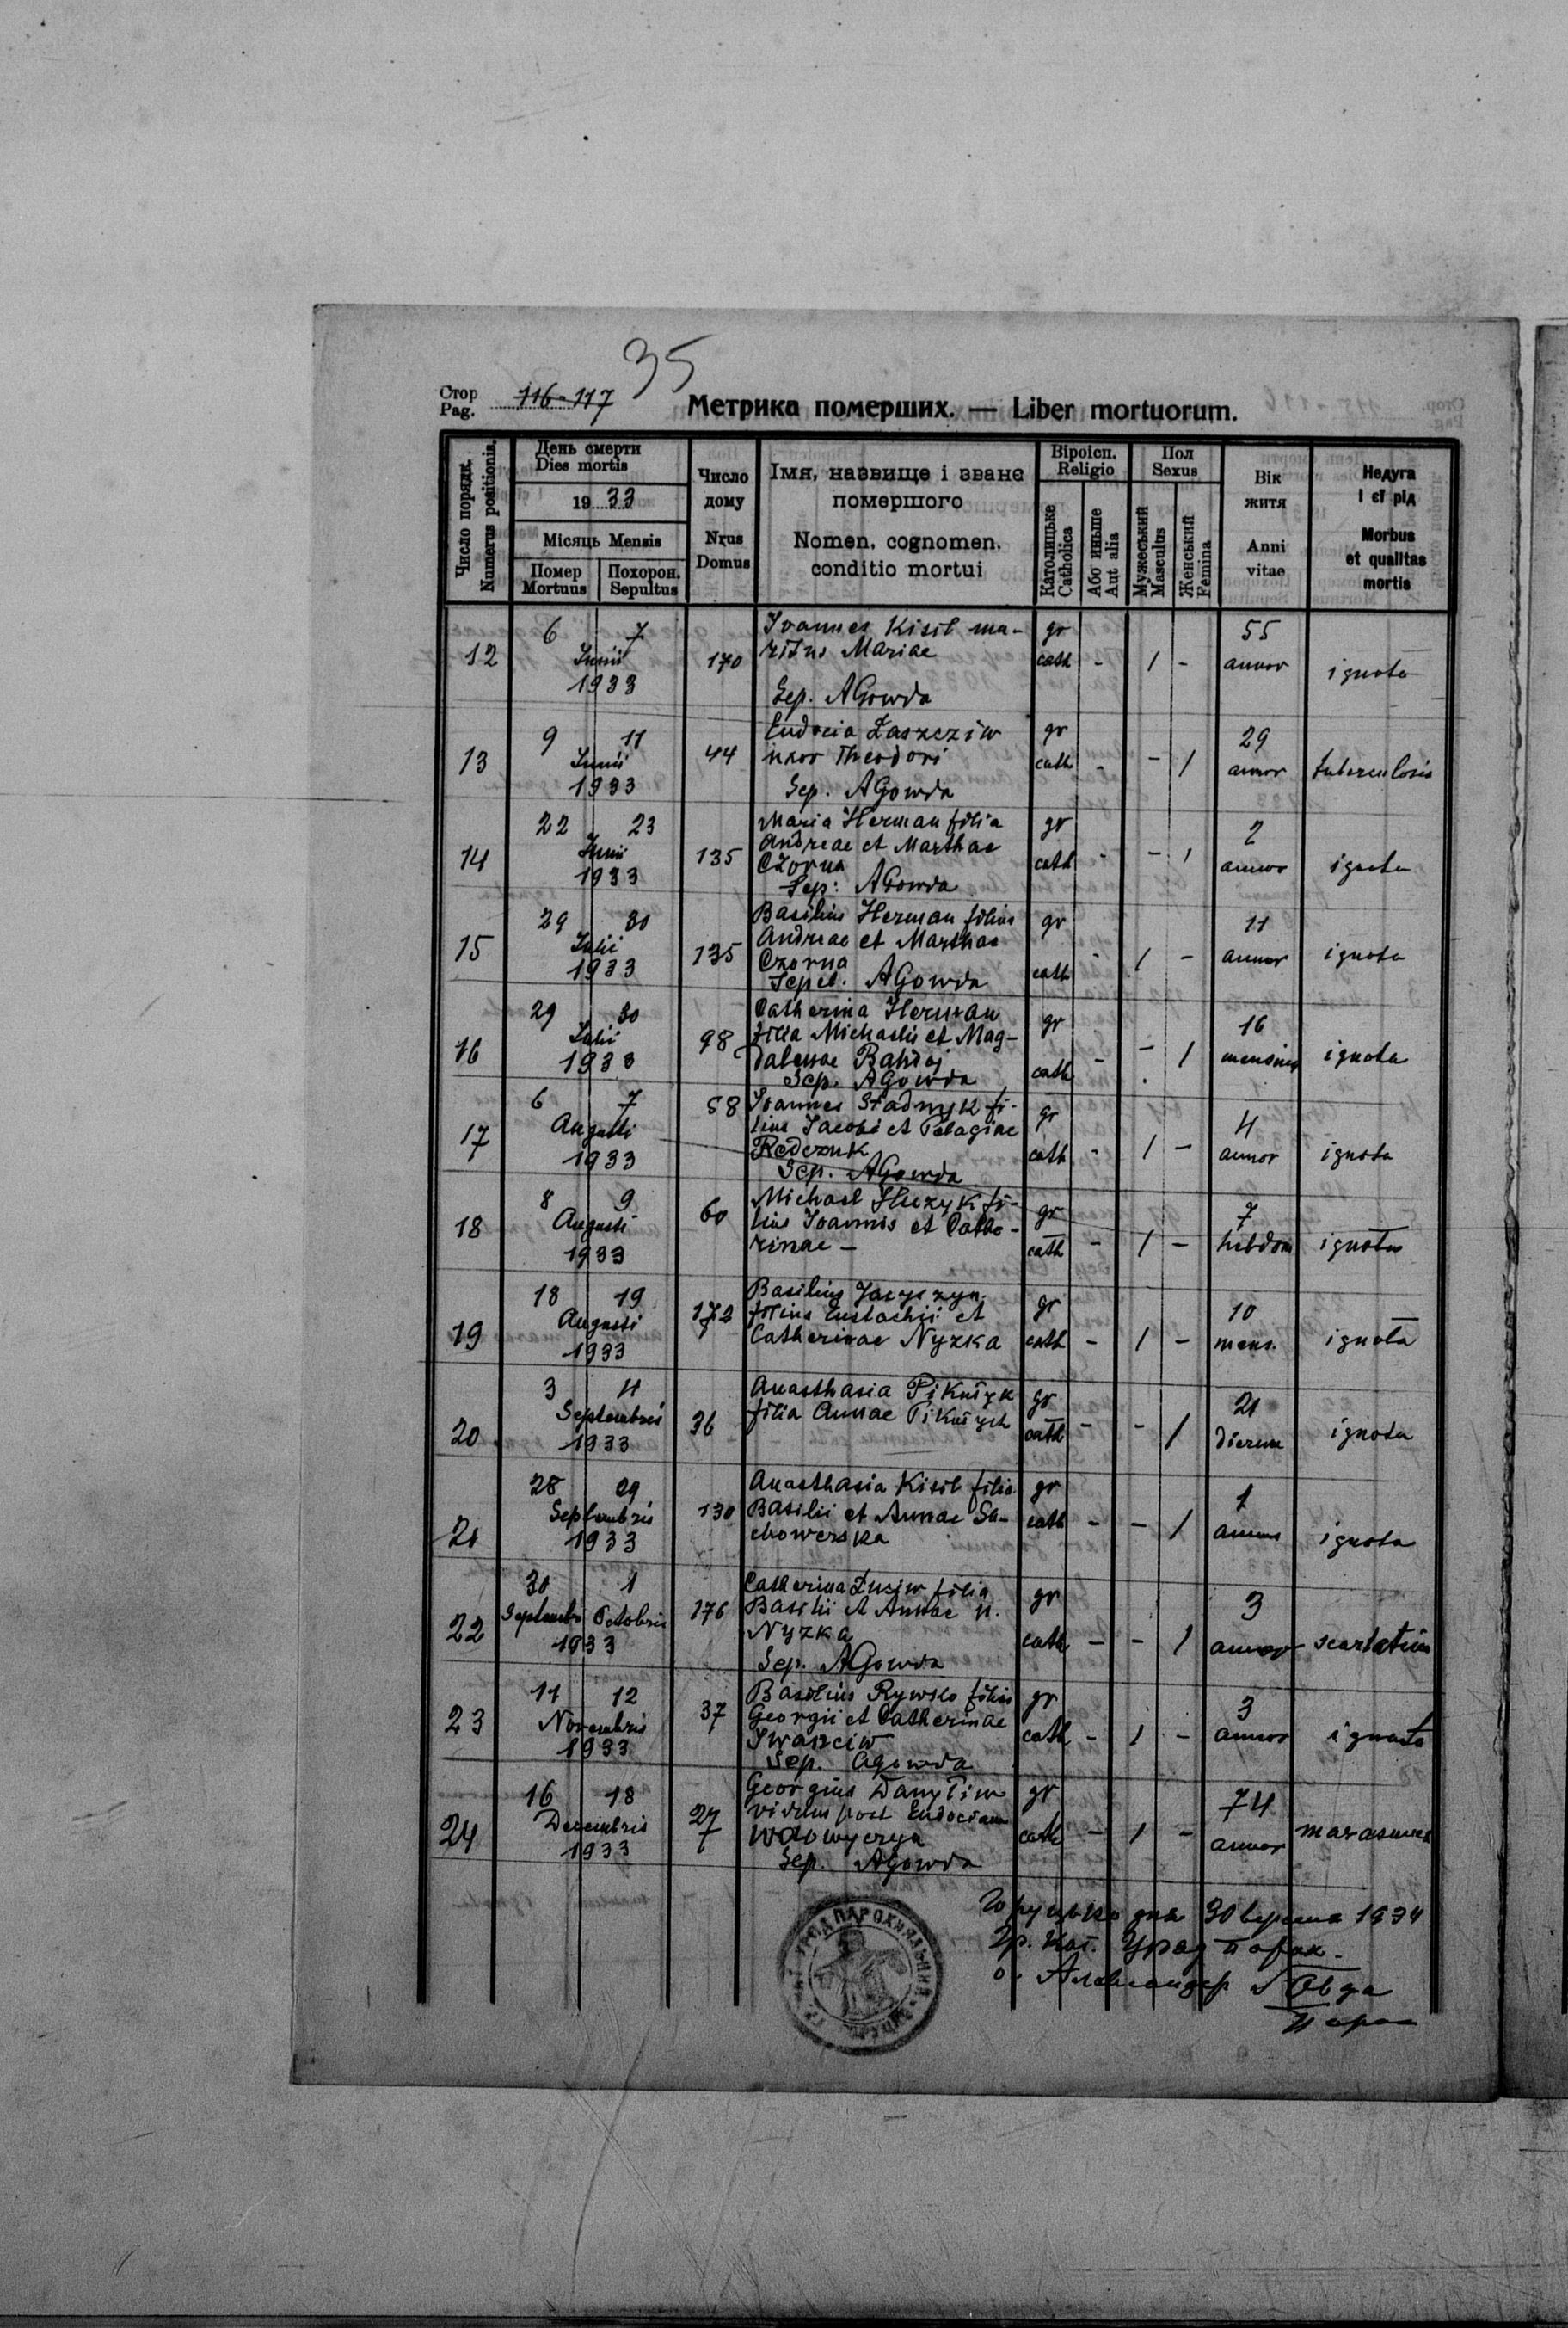 35
Стор Pag. 116-117
Метрика померших. — Liber mortuorum.
Число порядк. Numerus positionis.
День смерти Dies mortis
19 33
Місяць Mensis
Помер Mortuus
Похорон. Sepultus
Число дому Nrus Domus
Імя, назвище і званє помершого
Nomen, cognomen, conditio mortui
Віроісп. Religio
Католицьке Catholica
Або иньше Aut alia
Пол Sexus
Мужеський Masculus
Женський Femina
Вік житя Anni vitae
Недуга і єї рід
Morbus et qualitas mortis
12 6 7 Junii 1933 170
Ioannes Kisil ma-
ritus Mariae
Sep. AGowda
gr cath - 1 - 55 annor ignota
13 9 11 Junii 1933 44
Eudocia Zaszcziw
uxor Theodori
Sep. AGowda
gr cath - - 1 29 annor tuberculosis
14 22 23 Junii 1933 135
Maria Herman filia
Andreae et Marthae
Czorna
Sep: AGowda
gr cath - - 1 2 annor ignota
15 29 30 Julii 1933 135
Basilius Herman filius
Andreae et Marthae
Czorna
Sepel. AGowda
gr cath - 1 - 11 annor ignota
16 29 30 Julii 1933 98
Catherina Herman
filia Michaelis et Mag-
dalenae
Sep. AGowda
gr cath - - 1 16 ignota
17 6 7 Augusti 1933 58
Joannes Stadnyk fi-
lius Jacobi et Pelagiae
Redczuk
Sep. AGowda
gr cath - 1 - 4 annor ignota
18 8 9 Augusti 1933 60
Michael fi-
lius Joannis et Cathe-
rinae -
gr cath - 1 - 7 hebdom ignota
19 18 19 Augusti 1933 172
Basilius Jacyszyn
filius Eustachii et
Catherinae Nyzka
gr cath - 1 - 10 mens. ignota
20 3 4 Septembris 1933 36
Anasthasia
filia Annae
gr cath - - 1 21 dierum ignota
21 28 29 Septembris 1933 130
Anasthasia Kisil filia
Basilii et Annae Sa-
chowerska
gr cath - - 1 1 annus ignota
22 30 1 Septembr Octobris 1933 176
Catherina filia
Basilii et Annae n.
Nyzka
Sep. AGowda
gr cath - - 1 3 annor scarlatina
23 11 12 Novembris 1933 37
Basilius Rywko filius
Georgii et Catherinae
Iwasciw
Sep. AGowda
gr cath - 1 - 3 annor ignota
24 16 18 Decembris 1933 27
Georgius Danyliw
viduus post Eudociam
Wolowyczyn
Sep. AGowda
gr cath - 1 - 74 annor marasmus
дня 30 вересня 1934
Гр. кат. Уряд парох.
о. Александер Говда
парох